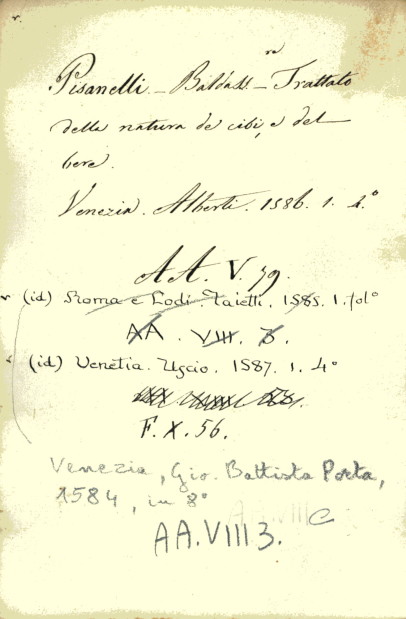 Pisanelli - Baldass.re - Trattato
della natura de cibi, e del
bere.
Venezia. Alberti. 1586. 1. 4.°
AA. V. 79.
(id) Roma e Lodi. Taietti. 1585. 1. fol°
AA. VIII. 3.
(id) Venetia. Uscio. 1587. 1. 4°
F. X. 56.
Venezia, Gio. Battista Porta,
1584, in 8°
AA. VIII 3.